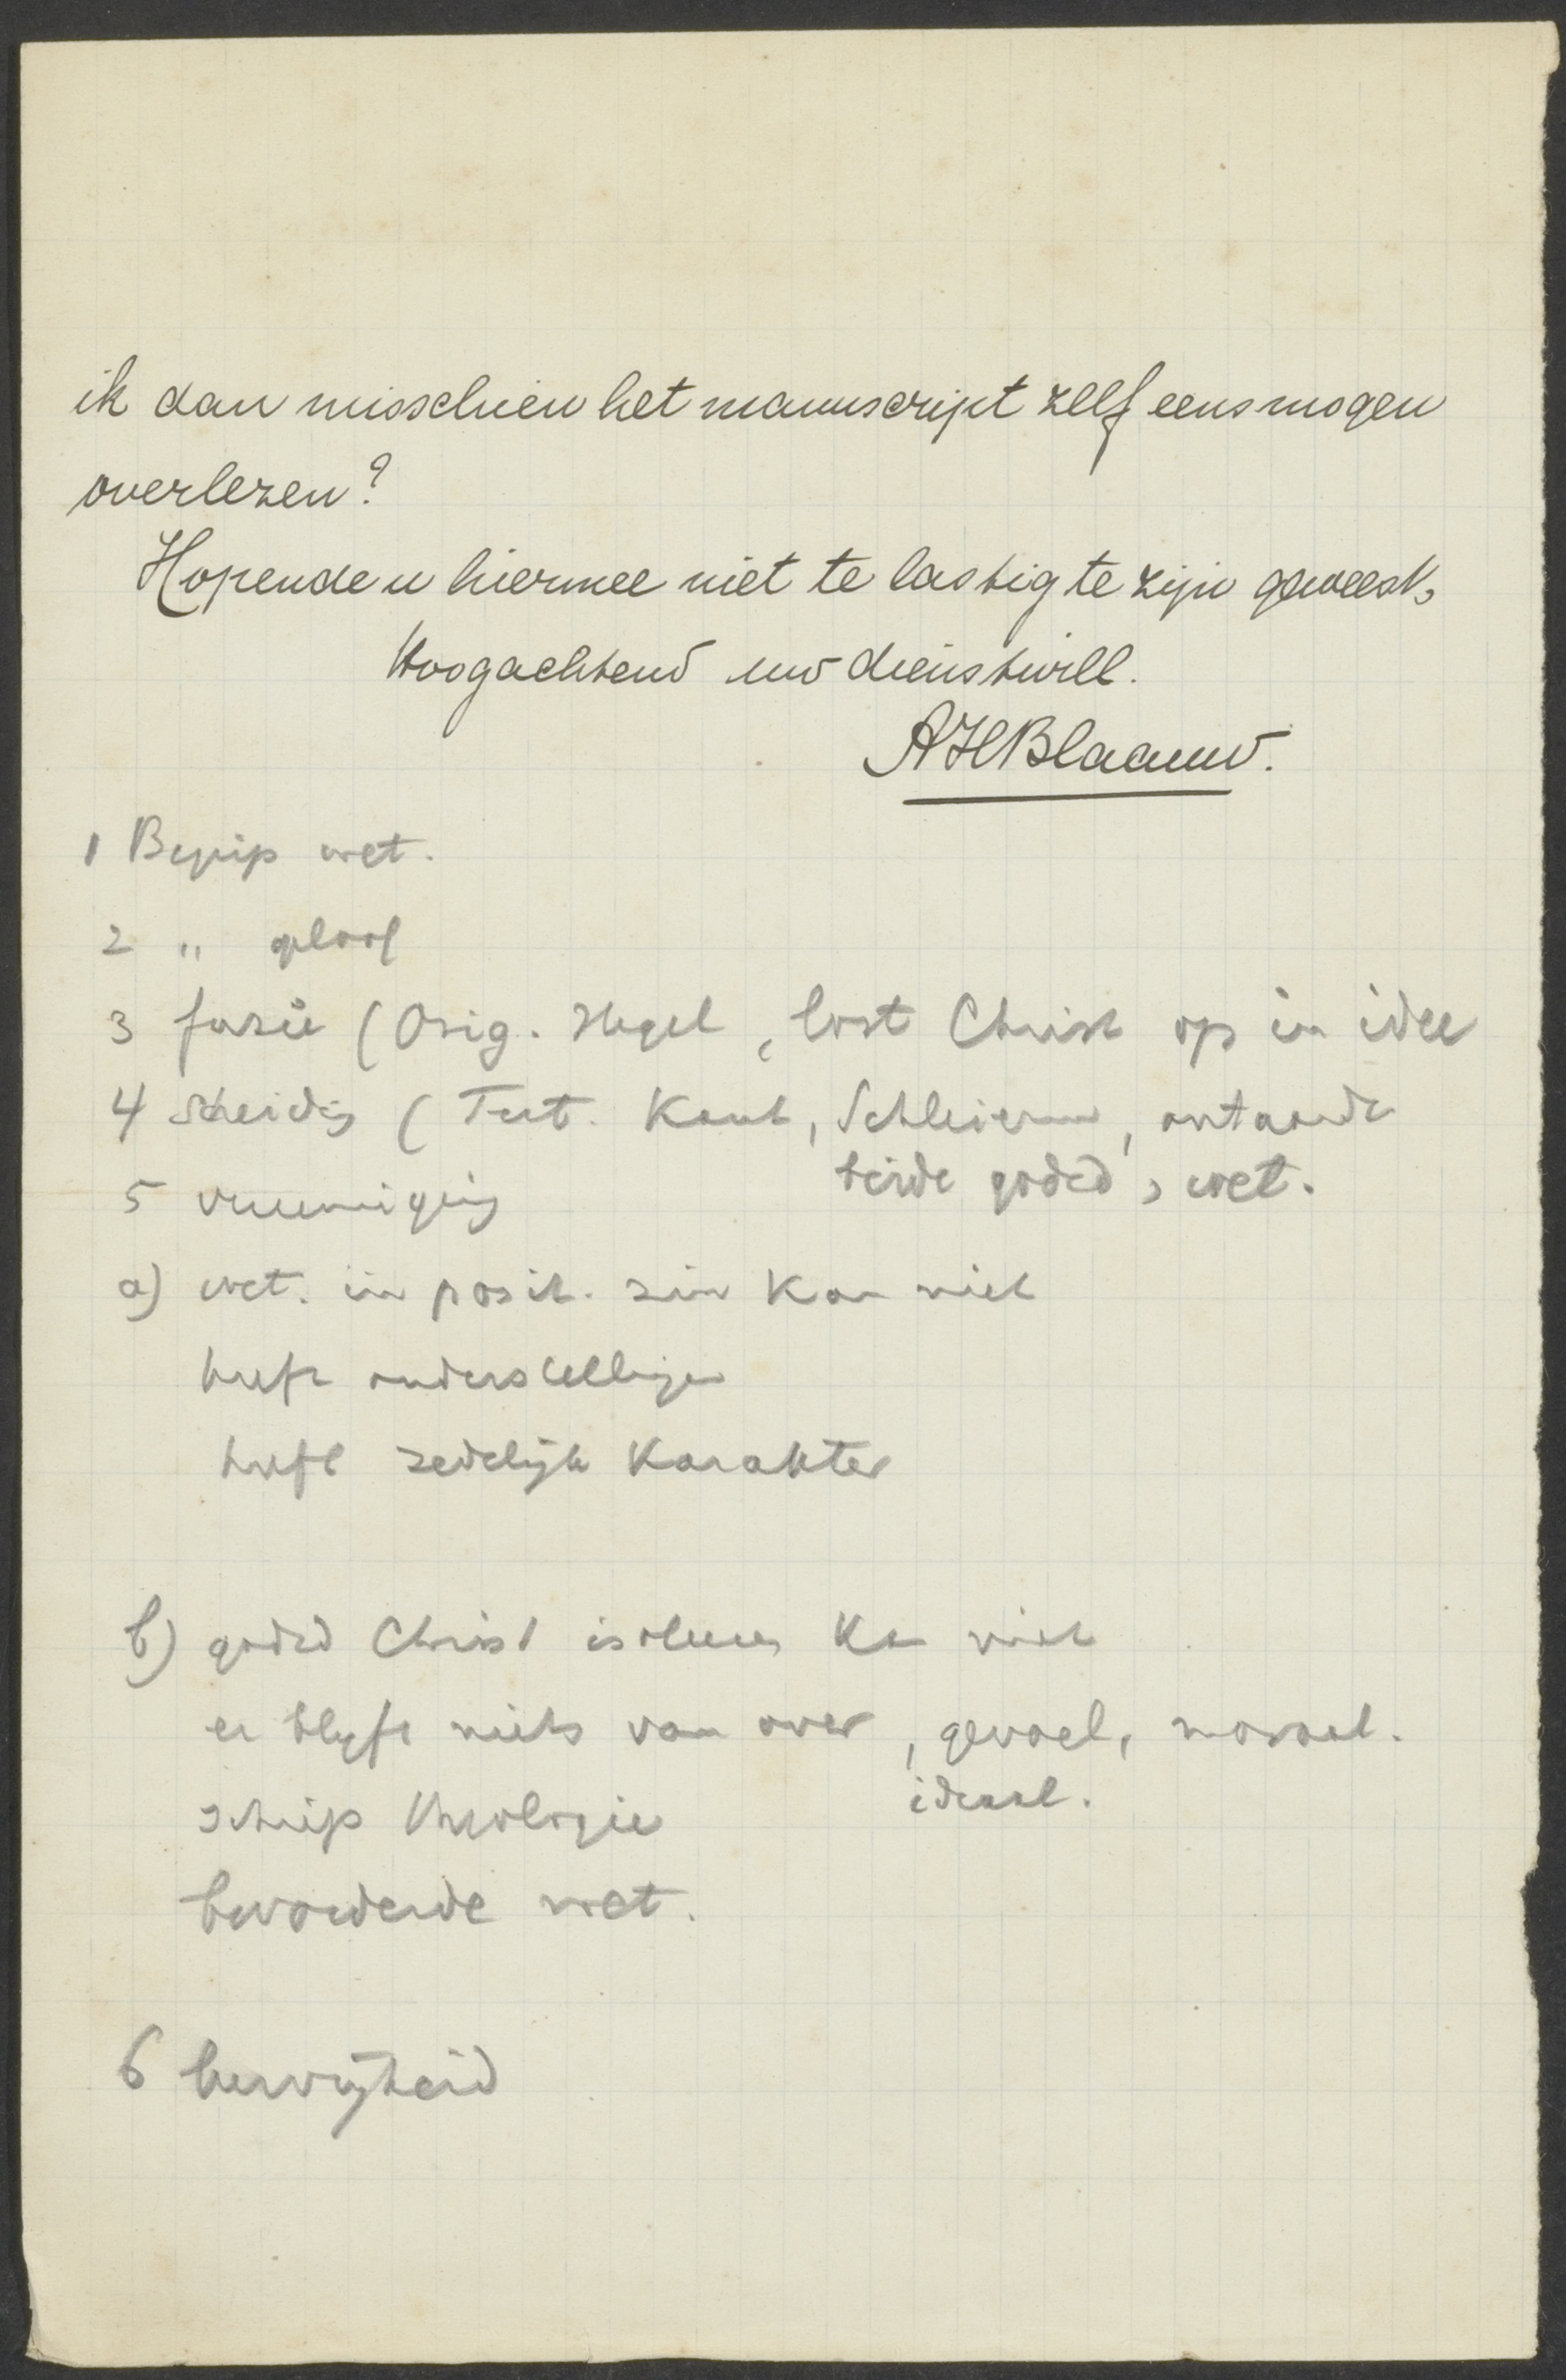 ik dan misschien het manuscript zelf eens mogen
overlezen?
Hopende u hiermee niet te lastig te zijn geweest,
Hoogachtend uw dienstwill.
AHBlaauw.
1 Begrip wet.
2 " geloof
3 fusie (Orig. Hegel, lost Christ op in idee
4 scheidg (Tert. Kant, Schleierm, ontaardt
beide godsd, wet.
5 vereeniging
a) wet. in posit. zin kan niet
heeft onderstellingen
heeft zedelijk karakter
b) godsd Christ isoleeren kan niet
er blyft niets van over, gevoel, moraal.
ideaal.
schiep theologie
bevorderde wet.
6